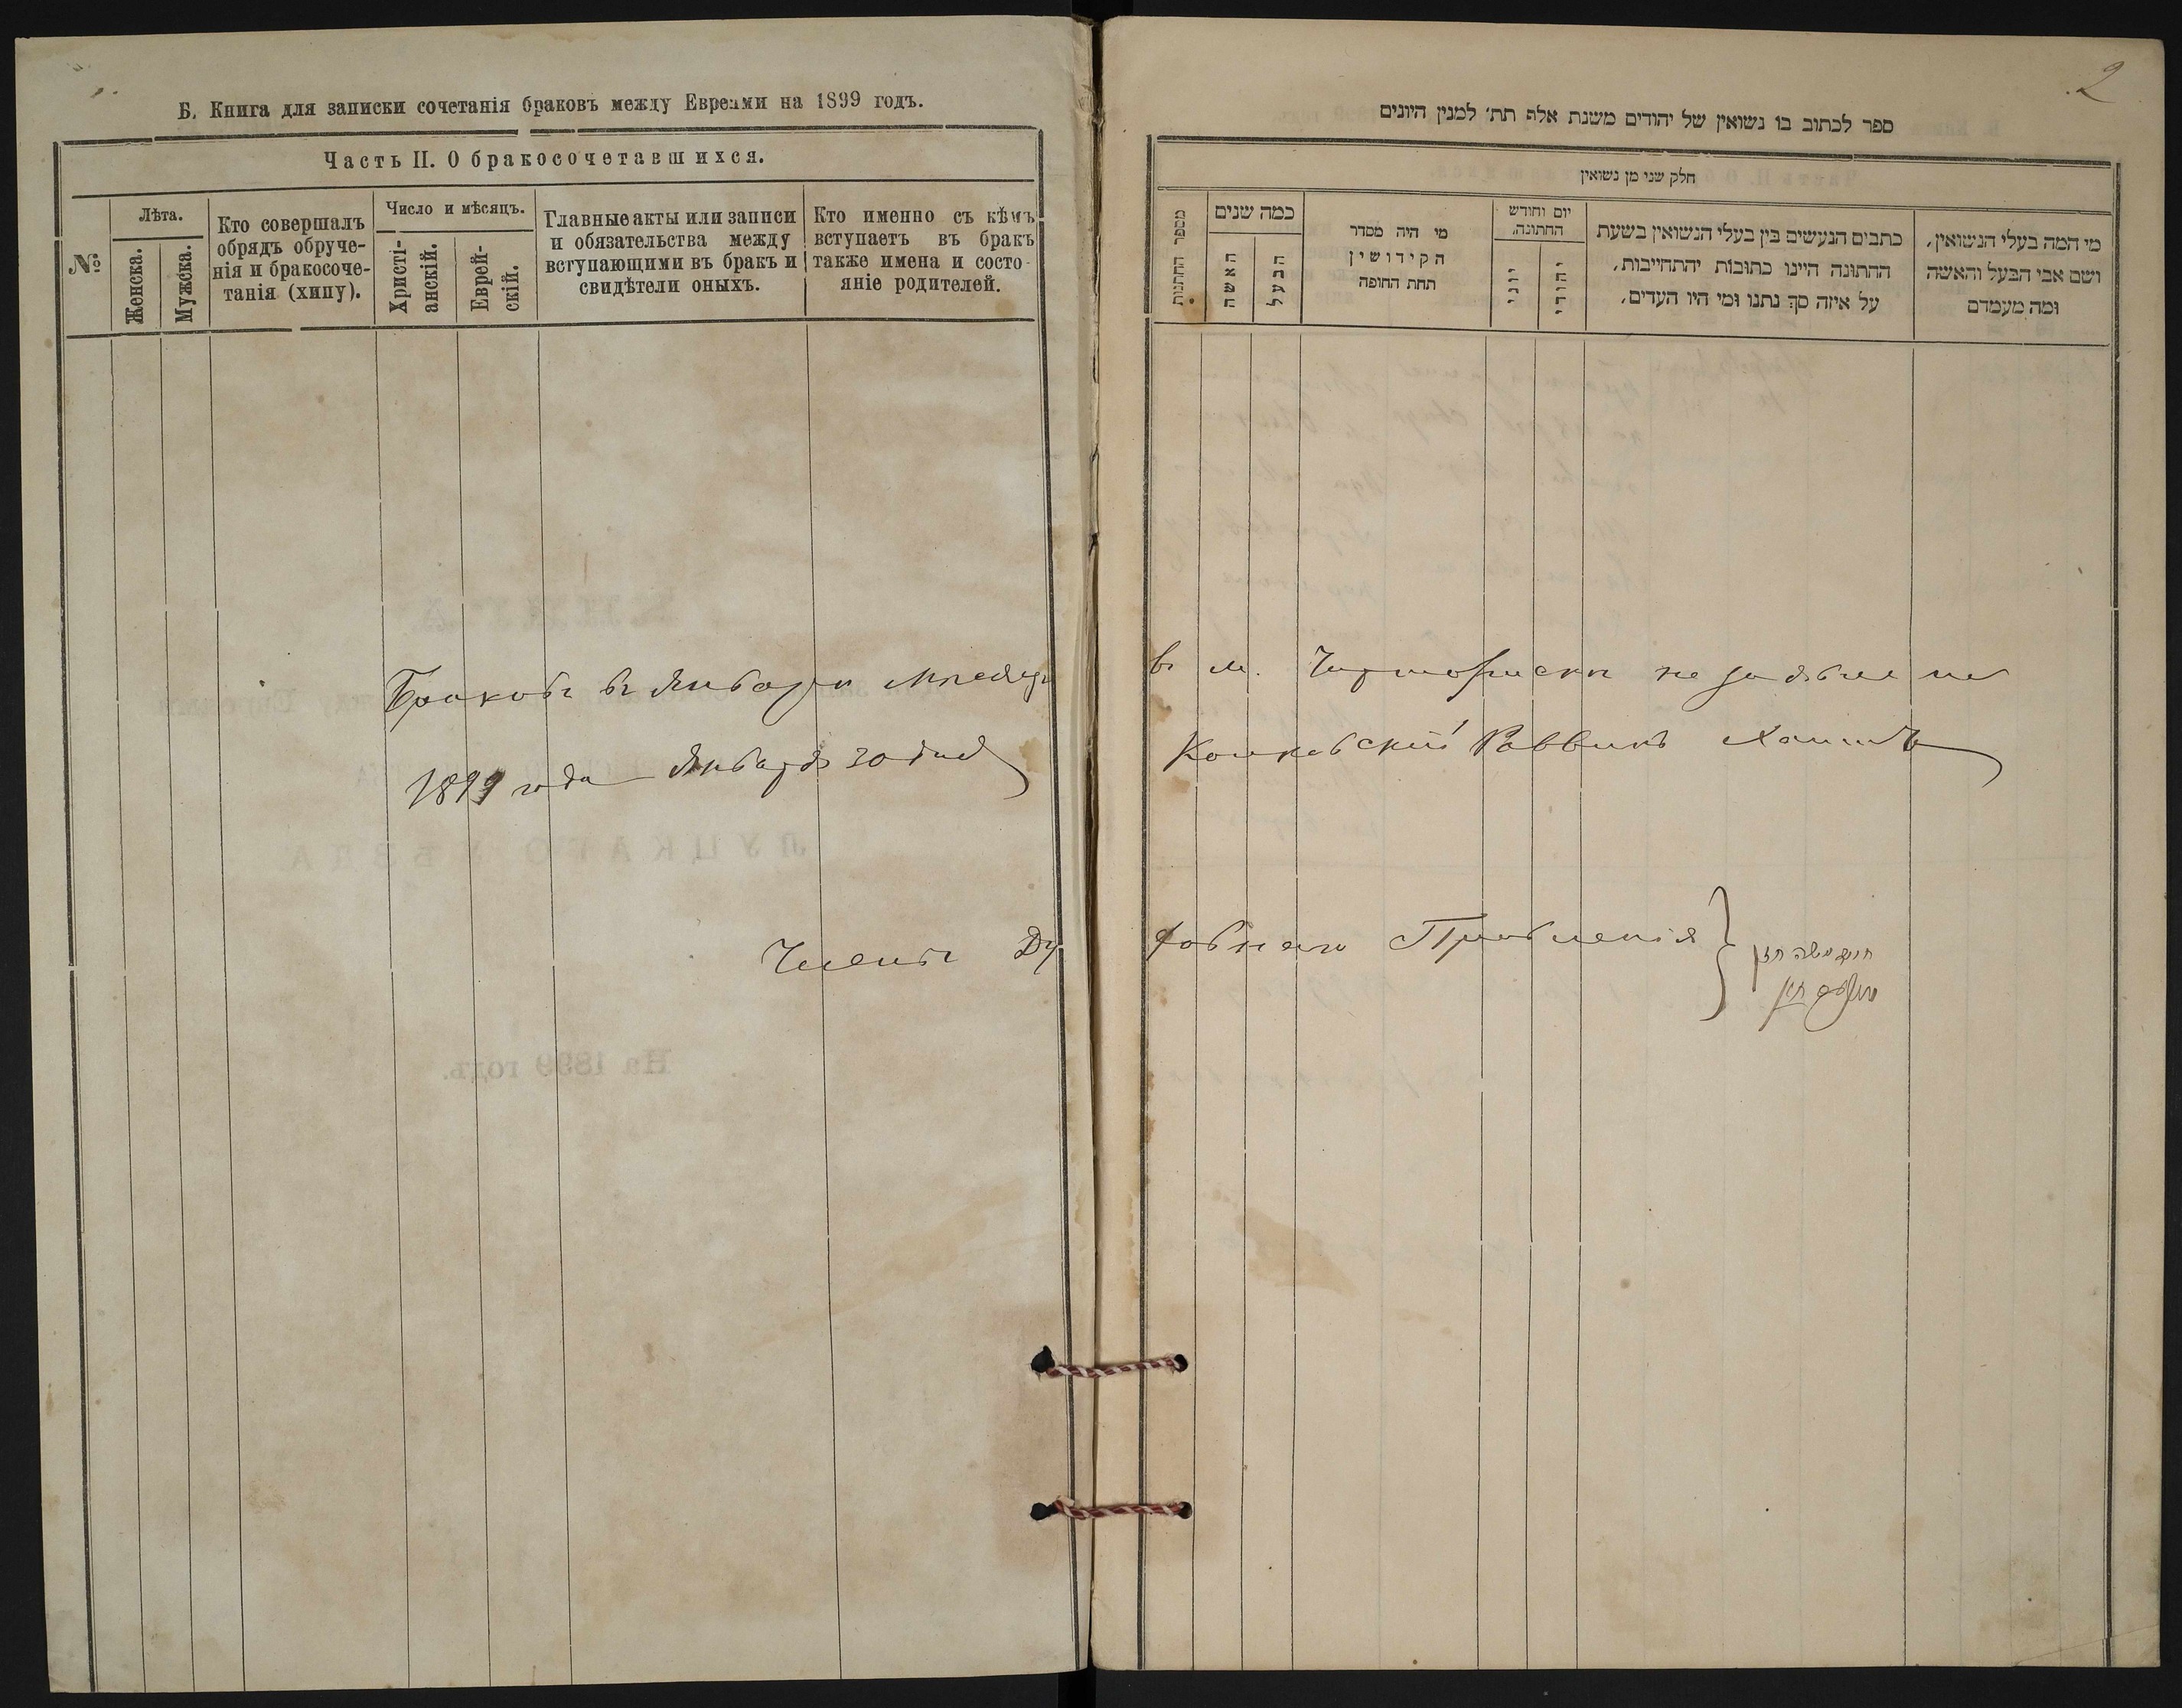 Б. Книга для записки сочетанія браковъ между Евреями на 1899 годъ.
Часть II. О бракосочетавшихся.
№
Лѣта.
Женска.
Мужска.
Кто совершалъ
обрядъ обруче-
нія и бракосоче-
танія (хипу).
Число и мѣсяцъ.
Христі-
анскій.
Еврей-
скій.
Главные акты или записи
и обязательства между
вступающими въ бракъ и
свидѣтели оныхъ.
Кто именно съ кѣмъ
вступаетъ въ бракъ
также имена и состо-
яніе родителей.
Браковъ въ Январѣ мѣсяцѣ
1899 года Января 30 дня
Члены Ду
2
ספר לכתוב בו נשואין של יהודים משנת אלף תת׳ למנין היונים
חלק שני מן נשואין
מספר החתנות
כמה שנים
האשה
הבעל
מי היה מסדר
הקידושין
תחת החופה
יום וחודש
החתונה,
יוני
יהודי
כתבים הנעשים בין בעלי הנשואין בשעת
החתונה היינו כתובות יהתחייבות,
על איזה סך נתנו ומי היו העדים,
מי המה בעלי הנשואין,
ושם אבי הבעל והאשה
ומה מעמדם
въ м. Чарторискѣ не заявлено
Колковскій Раввинъ
ховнаго Правленія